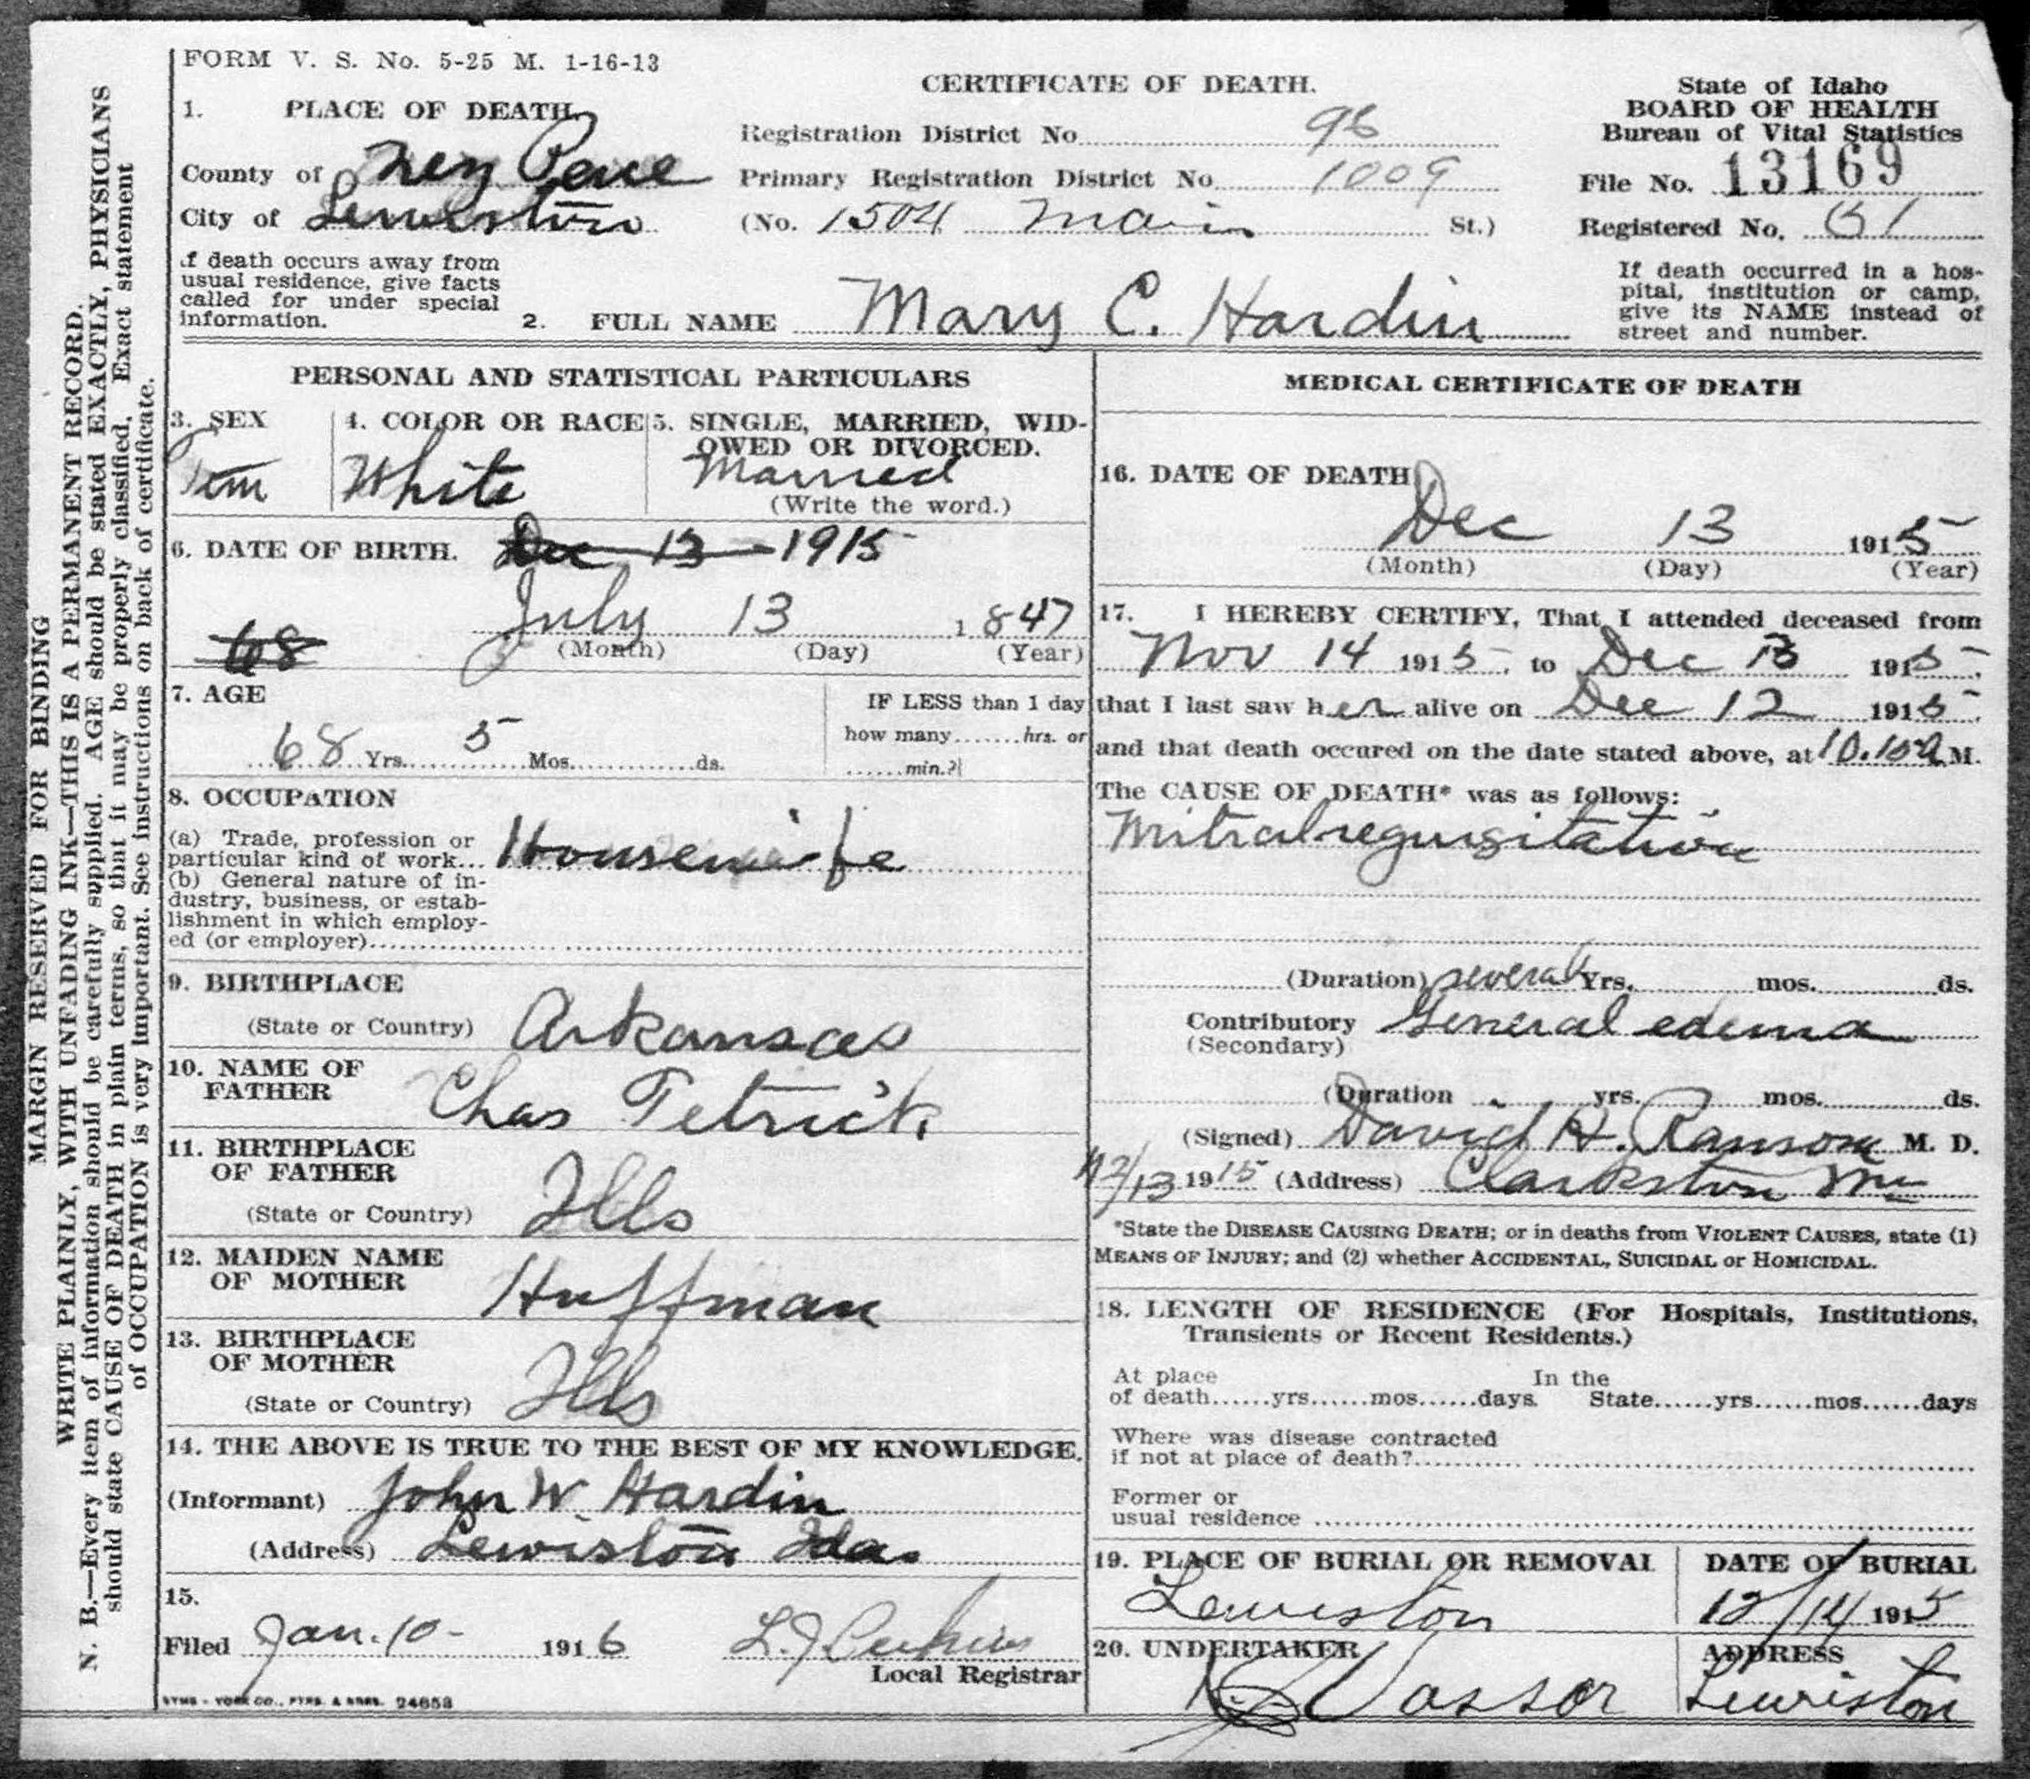 FORM V. S. No. 5-25 M. 1-16-13
CERTIFICATE OF DEATH.
State of Idaho
BOARD OF HEALTH
Bureau of Vital Statistics
File No. 13169
Registered No.
1. PLACE OF DEATH.
County of Nez Perce
City of Lewiston
Registration District No. 96
Primary Registration District No. 1009
(No. 1504 Main St.)
If death occurs away from
usual residence, give facts
called for under special
information.
2. FULL NAME Mary C. Hardin
If death occurred in a hos-
pital, institution or camp,
give its NAME instead of
street and number.
PERSONAL AND STATISTICAL PARTICULARS
3. SEX
Fem
4. COLOR OR RACE
White
5. SINGLE, MARRIED, WID-
OWED OR DIVORCED.
Married
(Write the word.)
6. DATE OF BIRTH. Dec 13 - 1915
July 13 1847
68 (Month) (Day) (Year)
7. AGE
68 Yrs. 5 Mos. ds.
IF LESS than 1 day
how many hrs. or
min.?
8. OCCUPATION
(a) Trade, profession or
particular kind of work... Housewife
(b) General nature of in-
dustry, business, or estab-
lishment in which employ-
ed (or employer)
9. BIRTHPLACE
(State or Country) Arkansas
10. NAME OF
FATHER Chas Tetrick
11. BIRTHPLACE
OF FATHER
(State or Country) Ills
12. MAIDEN NAME
OF MOTHER Huffman
13. BIRTHPLACE
OF MOTHER
(State or Country) Ills
14. THE ABOVE IS TRUE TO THE BEST OF MY KNOWLEDGE.
(Informant) John W Hardin
(Address) Lewiston Ida.
15.
Filed Jan. 10 - 1916 L. J. Perkins
Local Registrar
SYMS - YORK CO., PTRS. & BDRS. 24653
MEDICAL CERTIFICATE OF DEATH
16. DATE OF DEATH
Dec 13 1915
(Month) (Day) (Year)
17. I HEREBY CERTIFY, That I attended deceased from
Nov 14 1915, to Dec 13 1915,
that I last saw her alive on Dec 12 1915.
and that death occured on the date stated above, at 10.15 a M.
The CAUSE OF DEATH* was as follows:
Mitral reguigitation
(Duration) several Yrs. mos. ds.
Contributory General edema
(Secondary)
(Duration yrs. mos. ds.
(Signed) David H. Ransom M. D.
12/13 1915 (Address) Clarkston Wn
*State the DISEASE CAUSING DEATH; or in deaths from VIOLENT CAUSES, state (1)
MEANS OF INJURY; and (2) whether ACCIDENTAL, SUICIDAL or HOMICIDAL.
18. LENGTH OF RESIDENCE (For Hospitals, Institutions,
Transients or Recent Residents.)
At place In the
of death......yrs......mos......days. State......yrs......mos......days
Where was disease contracted
if not at place of death?
Former or
usual residence
19. PLACE OF BURIAL OR REMOVAL
Lewiston
DATE OF BURIAL
12/14 1915
20. UNDERTAKER
Vassar
ADDRESS
Lewiston
MARGIN RESERVED FOR BINDING
WRITE PLAINLY, WITH UNFADING INK—THIS IS A PERMANENT RECORD.
N. B.—Every item of information should be carefully supplied. AGE should be stated EXACTLY, PHYSICIANS
should state CAUSE OF DEATH in plain terms, so that it may be properly classified. Exact statement
of OCCUPATION is very important. See instructions on back of certificate.